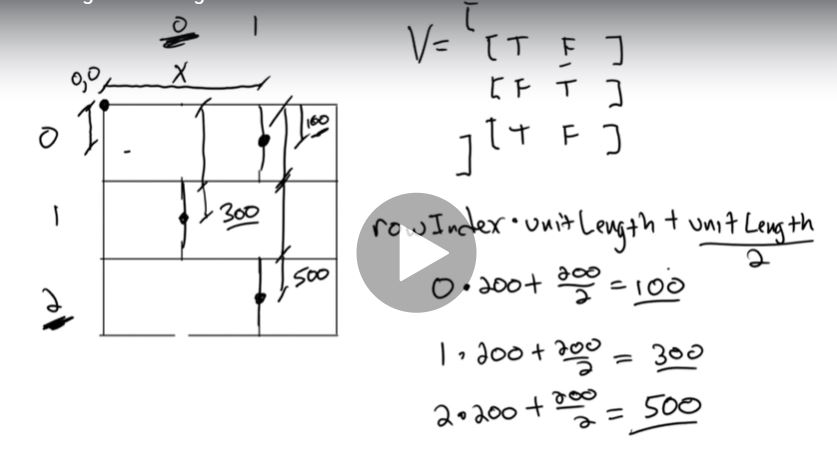 0 1
0,0 X
V= [
[ T F ]
[ F T ]
[ T F ]
]
0
100
1
300
2
500
rowIndex · unitLength + unitLength / 2
0 · 200 + 200/2 = 100
1 · 200 + 200/2 = 300
2 · 200 + 200/2 = 500